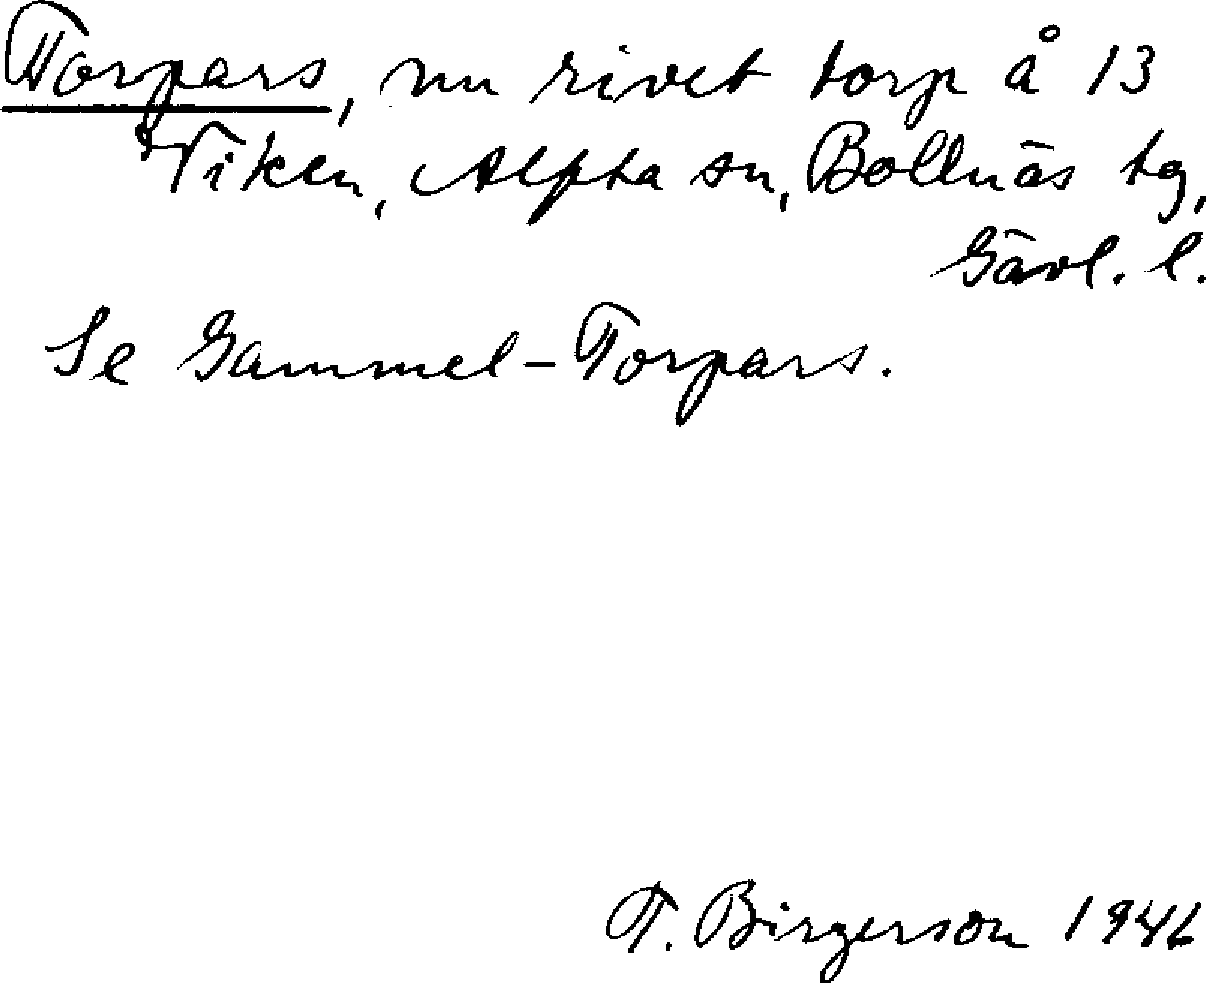 Torpars, nu rivet torp å 13
Viken, Alfta sn, Bollnäs tg,
Gävl. l.
Se Gammel-Torpars.
T. Birgerson 1946